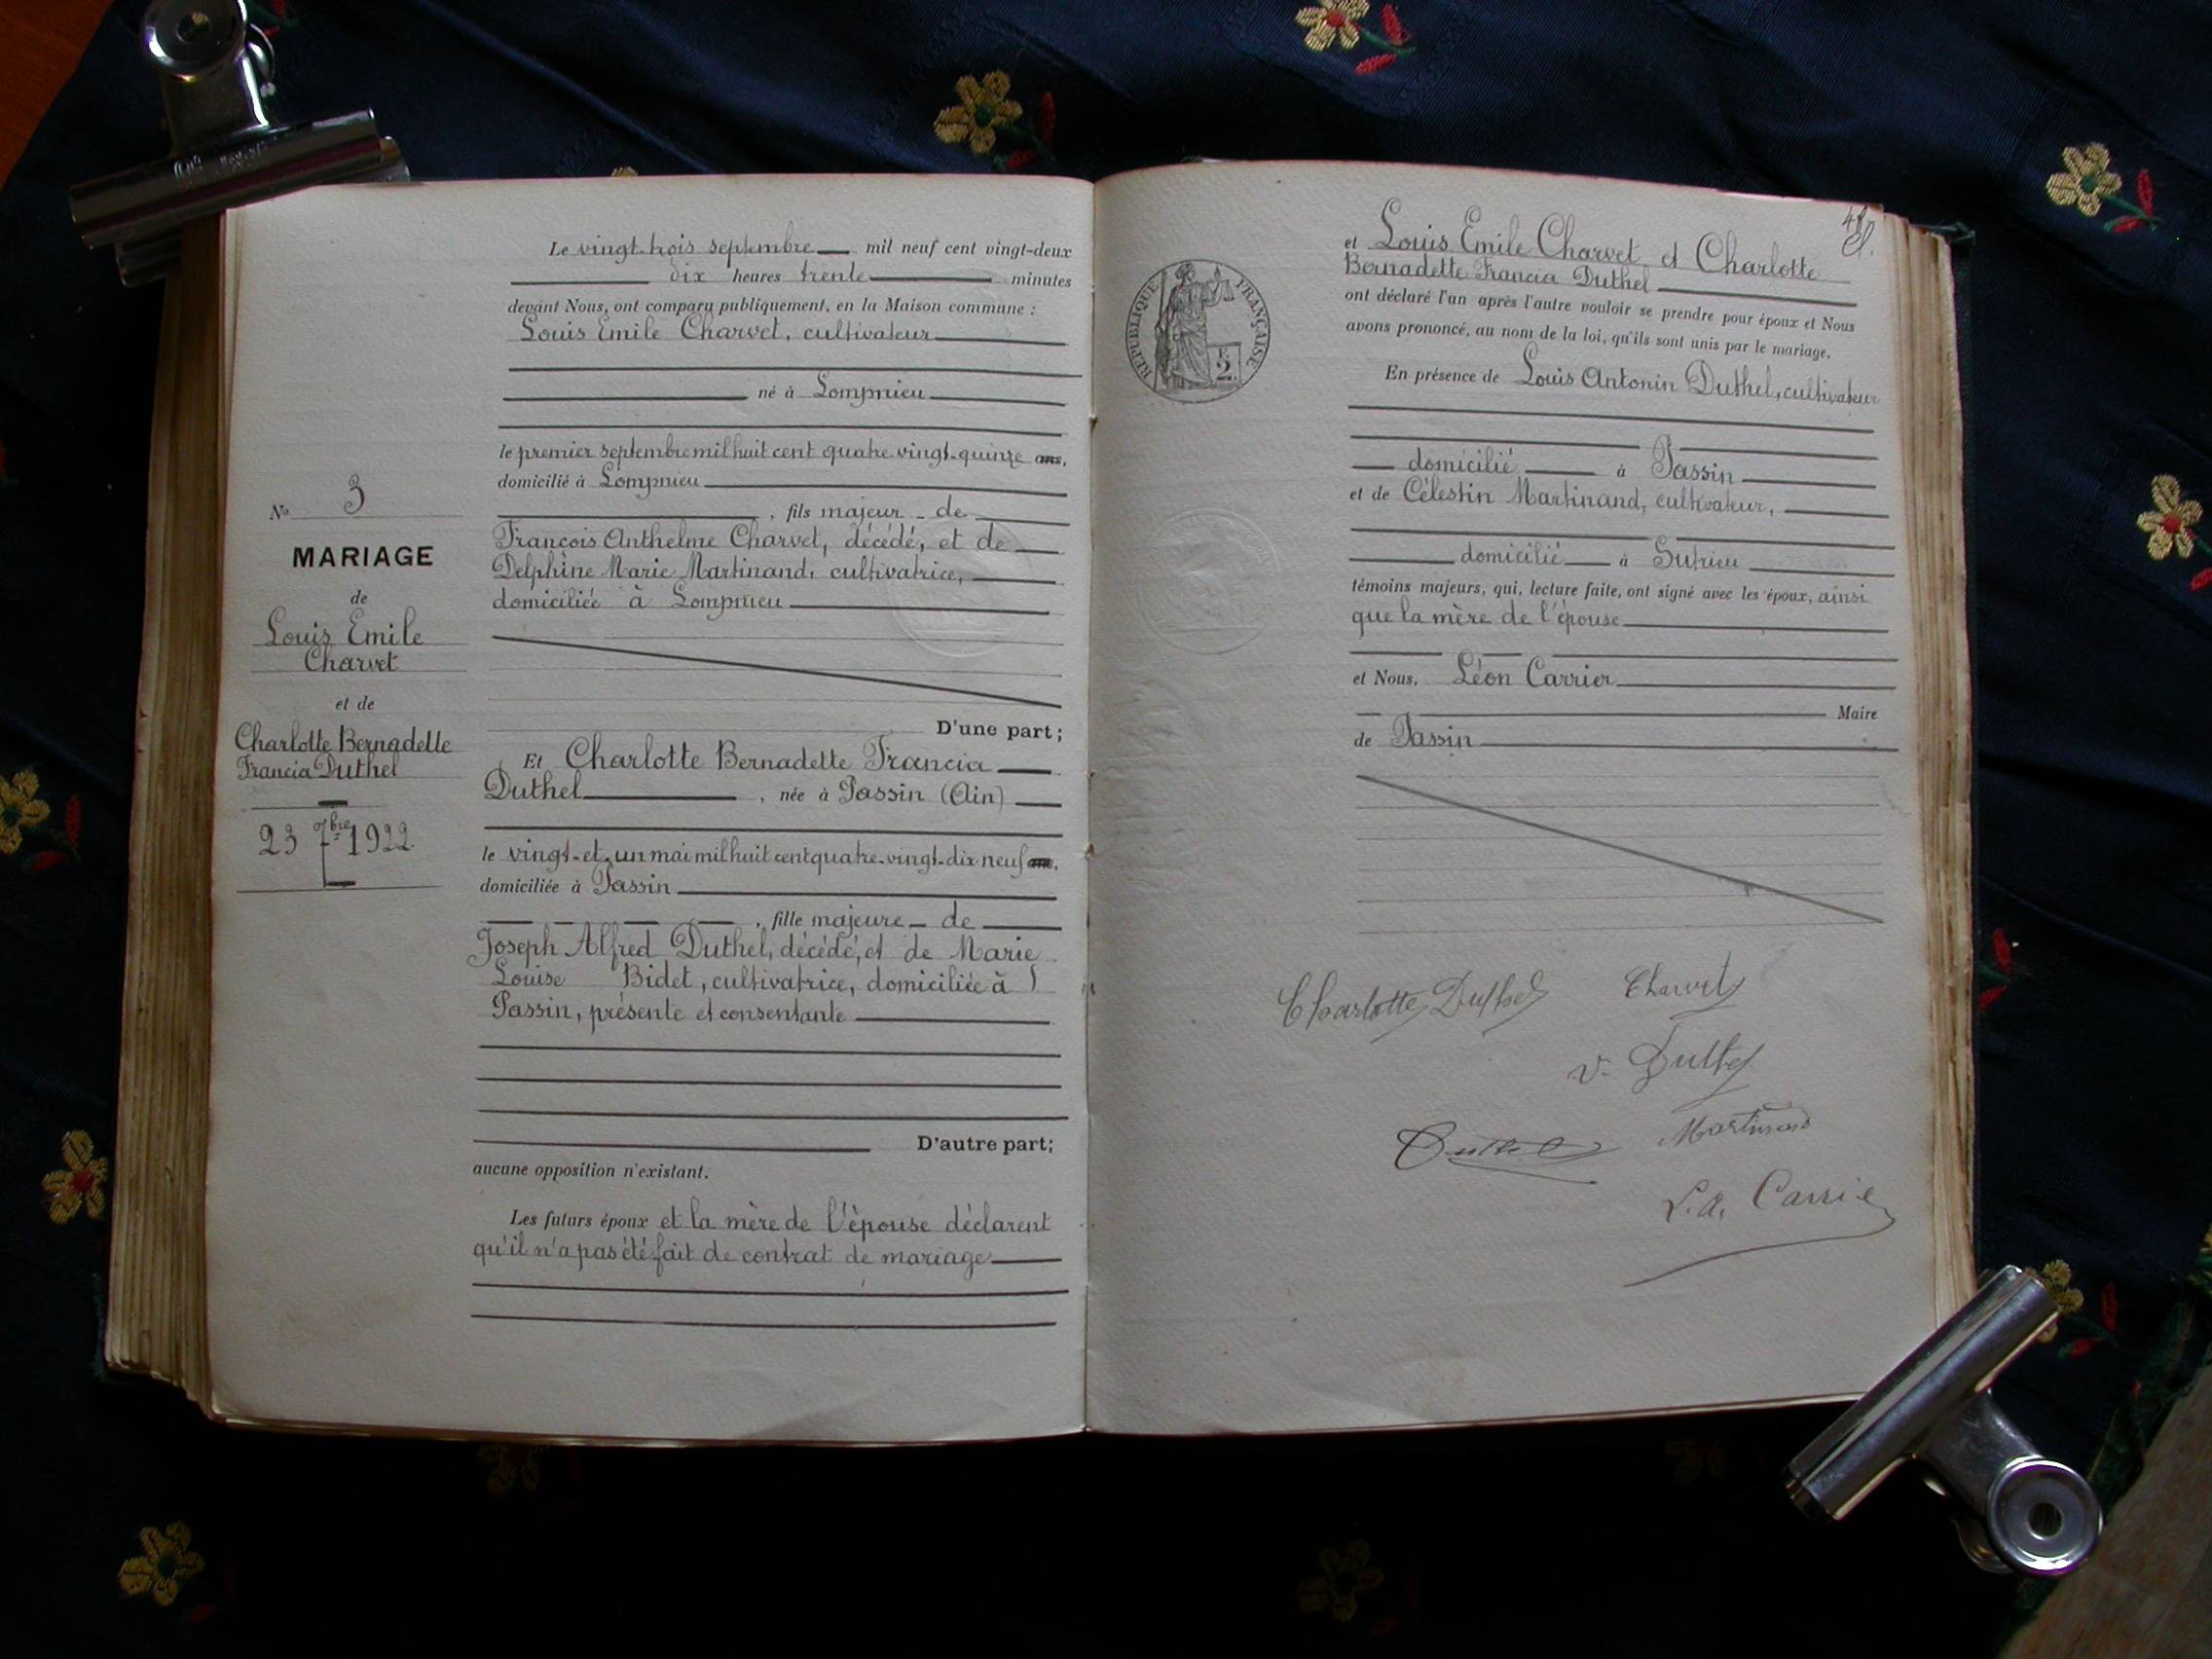 Le vingt-trois septembre mil neuf cent vingt-deux
dix heures trente minutes
devant Nous, ont comparu publiquement, en la Maison commune :
Louis Emile Charvet, cultivateur
né à Lompnieu
le premier septembre mil huit cent quatre-vingt-quinze ans,
domicilié à Lompnieu
, fils majeur de
François Anthelme Charvet, décédé, et de
Delphine Marie Martinand, cultivatrice,
domiciliée à Lompnieu
D'une part;
Et Charlotte Bernadette Francia
Duthel, née à Passin (Ain)
le vingt-et-un mai mil huit cent quatre-vingt-dix-neuf ans,
domiciliée à Passin
, fille majeure de
Joseph Alfred Duthel, décédé, et de Marie
Louise Bidet, cultivatrice, domiciliée à
Passin, présente et consentante
D'autre part;
aucune opposition n'existant.
Les futurs époux et la mère de l'épouse déclarent
qu'il n'a pas été fait de contrat de mariage
No 3
MARIAGE
de
Louis Emile
Charvet
et de
Charlotte Bernadette
Francia Duthel
23 7bre 1922
RÉPUBLIQUE FRANÇAISE
2
et Louis Emile Charvet et Charlotte
Bernadette Francia Duthel
ont déclaré l'un après l'autre vouloir se prendre pour époux et Nous
avons prononcé, au nom de la loi, qu'ils sont unis par le mariage.
En présence de Louis Antonin Duthel, cultivateur
domicilié à Passin
et de Célestin Martinand, cultivateur,
domicilié à Sutrieu
témoins majeurs, qui, lecture faite, ont signé avec les époux, ainsi
que la mère de l'épouse
et Nous, Léon Carrier
Maire
de Passin
Charlotte Duthel Charvet
v. Duthel
Duthel Martinand
L.a. Carrie